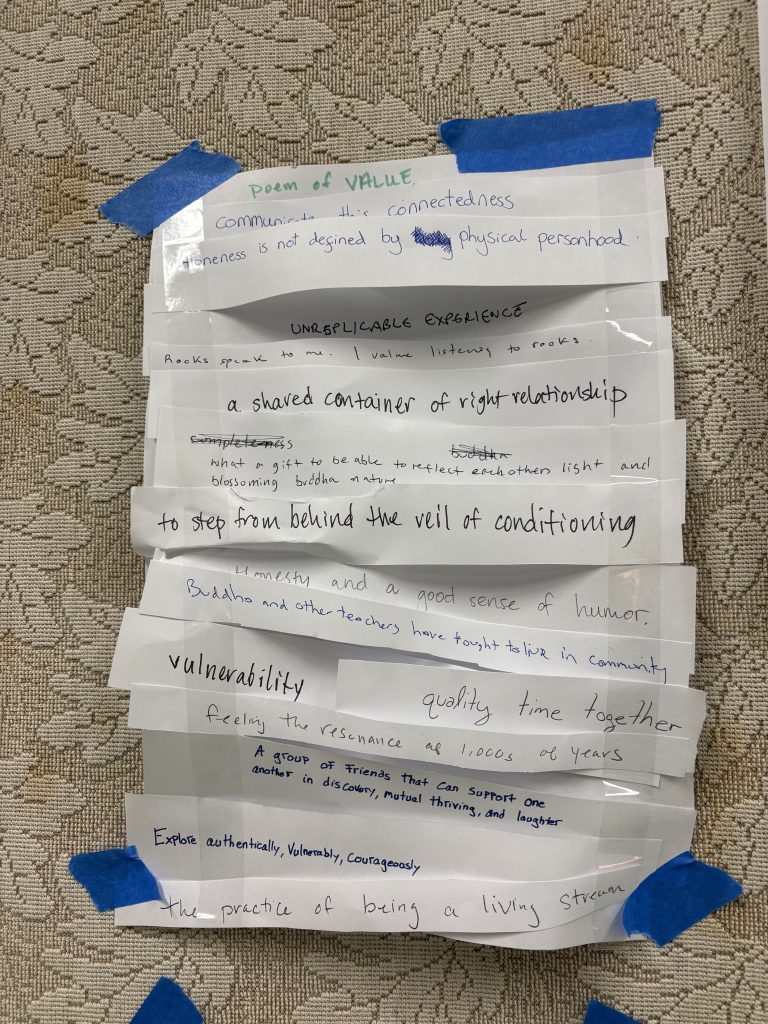 poem of VALUE
communicate this connectedness
Oneness is not defined by physical personhood.
UNREPLICABLE EXPERIENCE
Rocks speak to me. I value listening to rocks.
a shared container of right relationship
completeness buddha
what a gift to be able to reflect each others light and
blossoming buddha nature
to step from behind the veil of conditioning
Honesty and a good sense of humor.
Buddha and other teachers have tought to live in community
vulnerability
quality time together
feeling the resonance of 1,000s of years
A group of Friends that can support one
another in discovery, mutual thriving, and laughter
Explore authentically, Vulnerably, Courageously
the practice of being a living stream